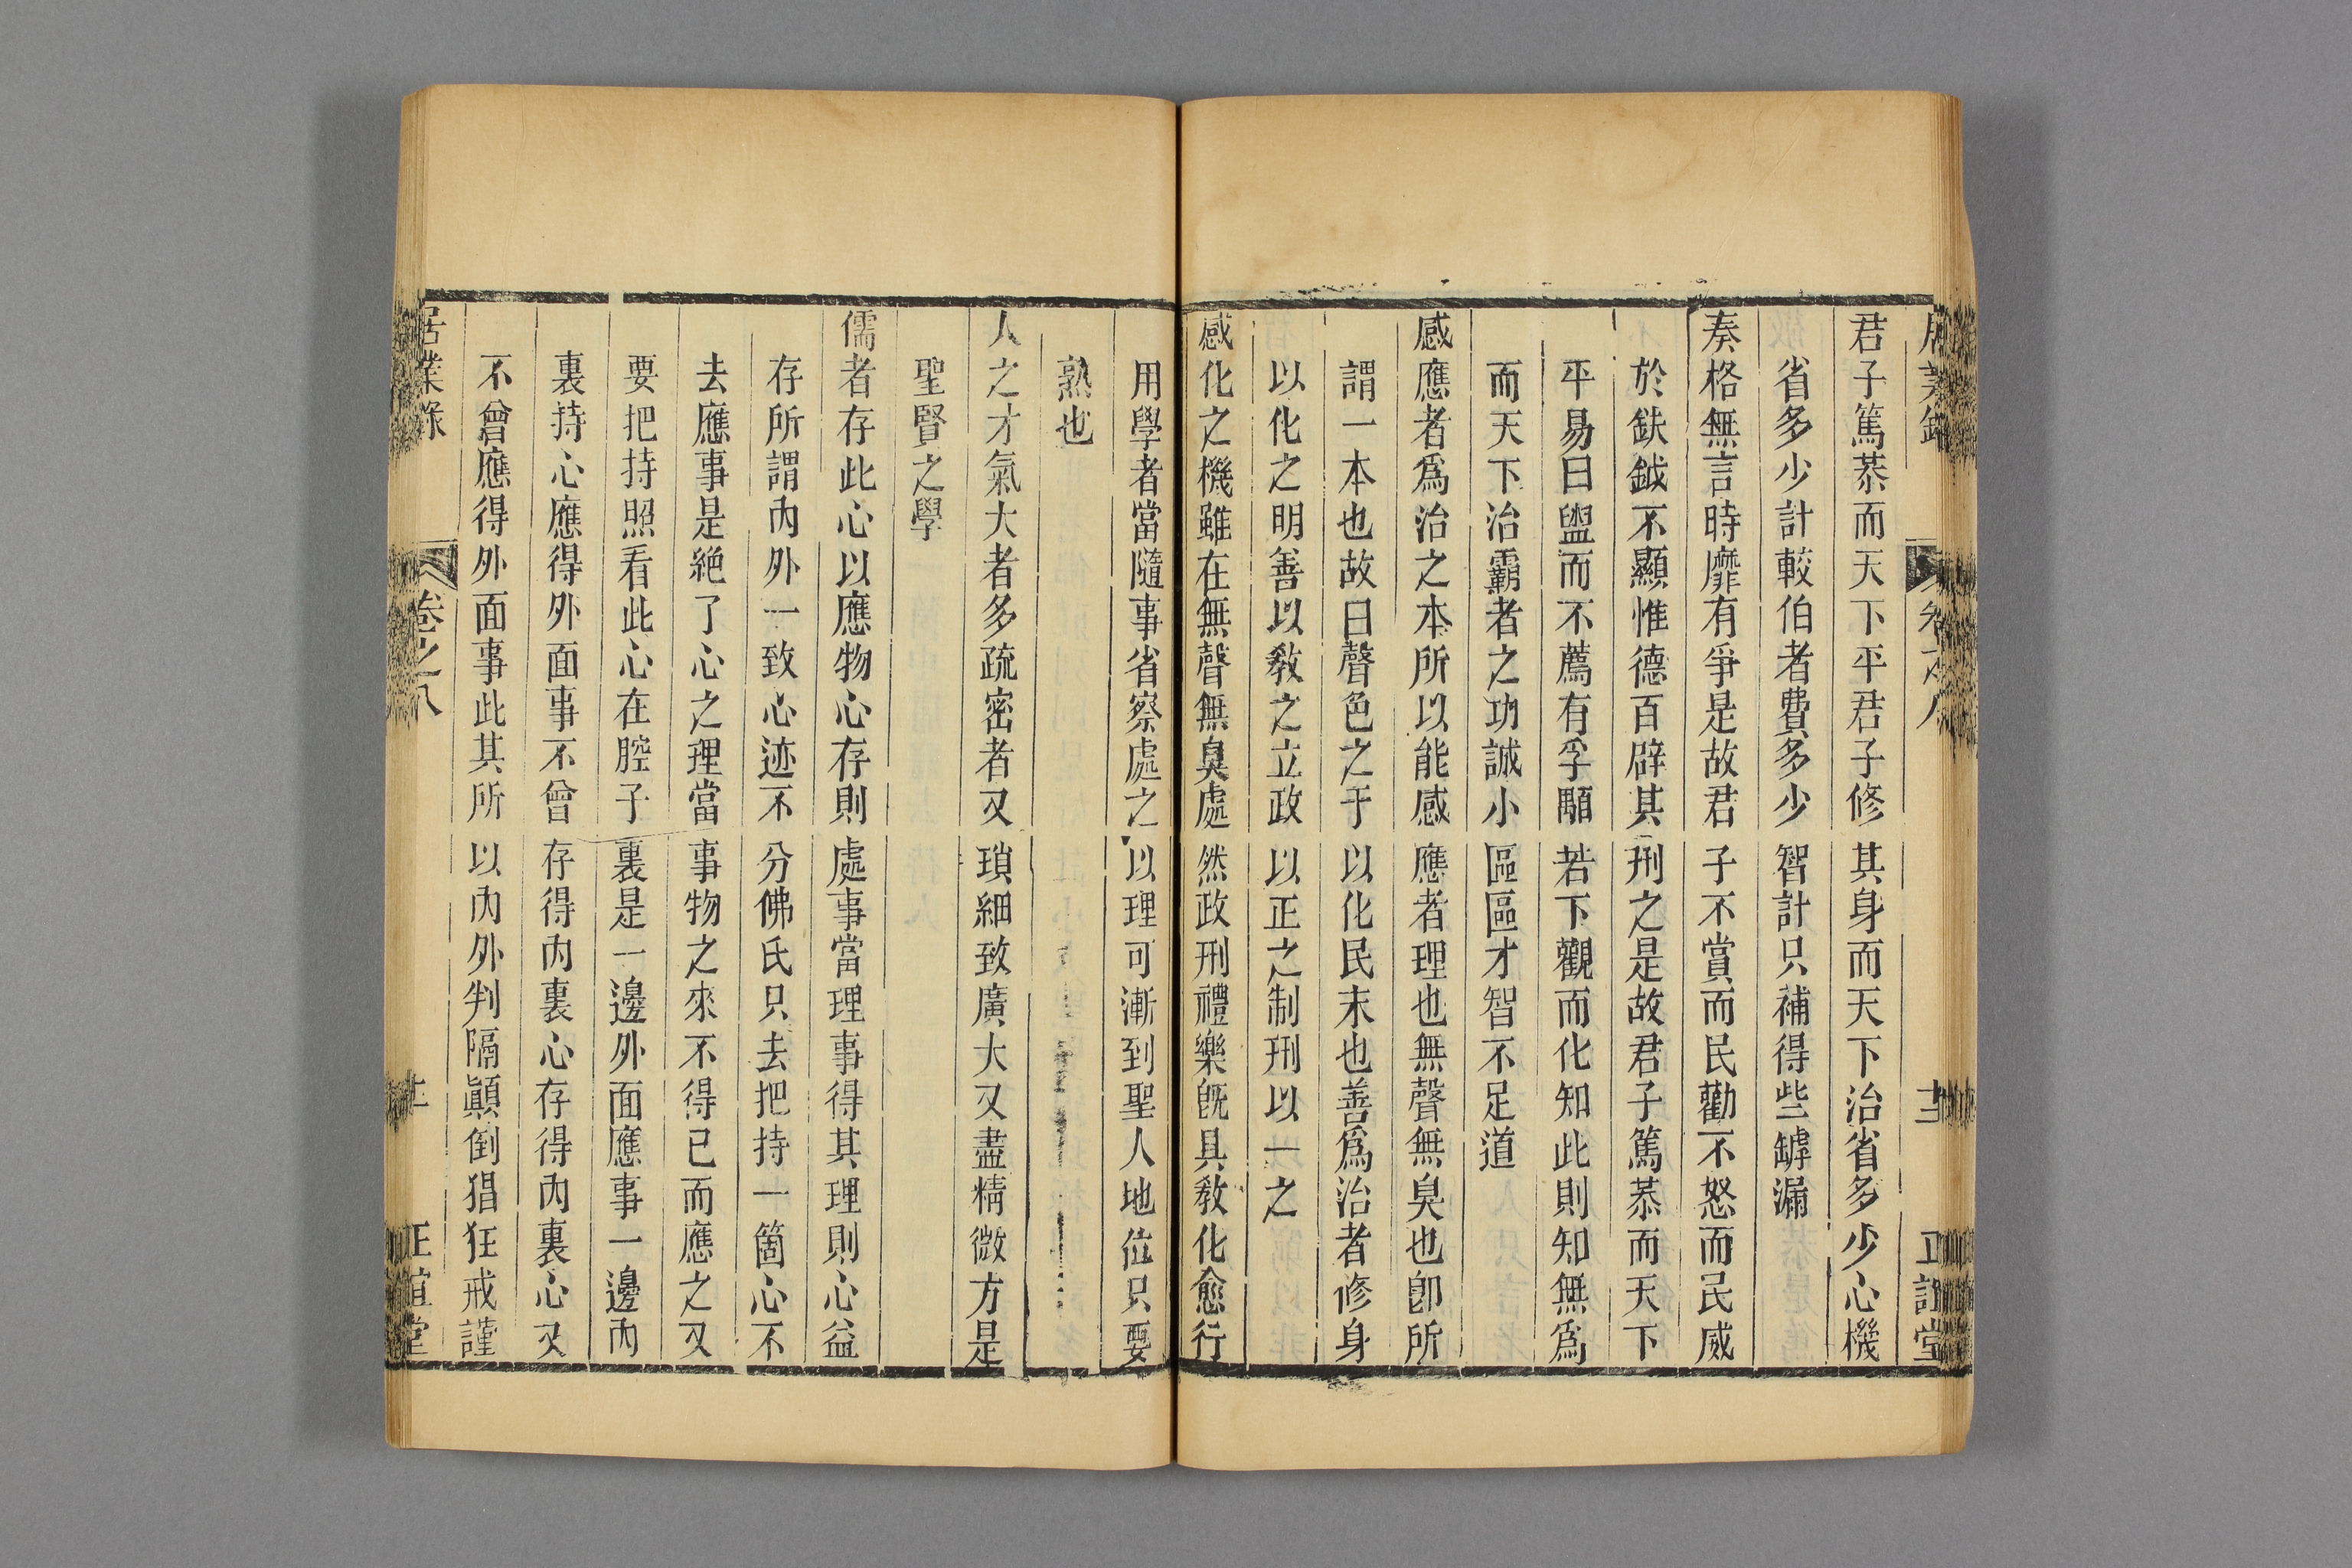 居業錄 卷之八 十二 正誼堂
君子篤恭而天下平君子修其身而天下治省多少心機
省多少計較伯者費多少智計只補得些罅漏
奏格無言時靡有爭是故君子不賞而民勸不怒而民威
於鈇鉞不顯惟德百辟其刑之是故君子篤恭而天下
平易曰盥而不薦有孚顒若下觀而化知此則知無為
而天下治霸者之功誠小區區才智不足道
感應者爲治之本所以能感應者理也無聲無臭也卽所
謂一本也故曰聲色之于以化民末也善爲治者修身
以化之明善以敎之立政以正之制刑以一之
感化之機雖在無聲無臭處然政刑禮樂旣具敎化愈行
用學者當隨事省察處之以理可漸到聖人地位只要
熟也
人之才氣大者多疏密者又瑣細致廣大又盡精微方是
聖賢之學
儒者存此心以應物心存則處事當理事得其理則心益
存所謂內外一致心迹不分佛氏只去把持一箇心不
去應事是絕了心之理當事物之來不得已而應之又
要把持照看此心在腔子裏是一邊外面應事一邊內
裏持心應得外面事不曾存得內裏心存得內裏心又
不曾應得外面事此其所以內外判隔顚倒猖狂戒謹
居業錄 卷之八 十一 正誼堂